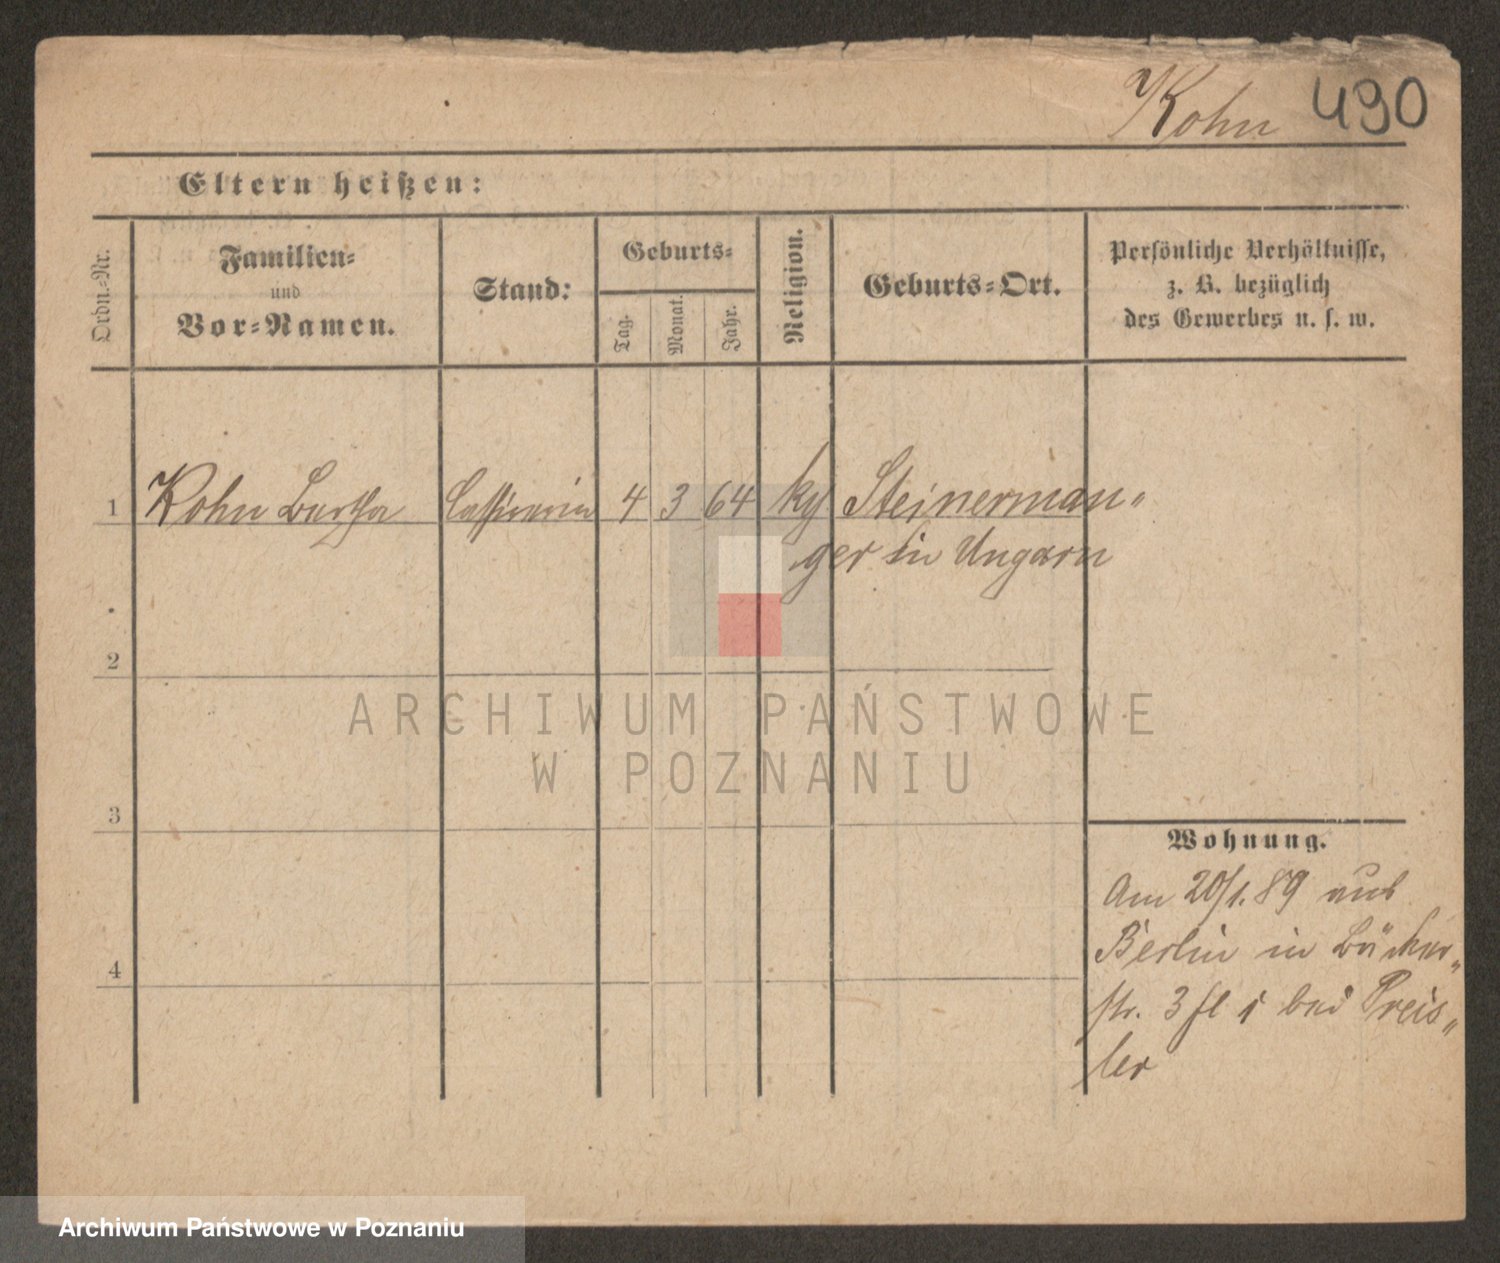 Kohn 490
Eltern heißen:
Ordn.-Nr.
Familien-
und
Vor-Namen.
Stand:
Geburts-
Tag.
Monat.
Jahr.
Religion.
Geburts-Ort.
Persönliche Verhältnisse,
z. B. bezüglich
des Gewerbes u. s. w.
1 Kohn Bertha Cassirerin 4 3 64 Steinerman„
ger in Ungarn
2
3
4
Wohnung.
Am 20/1. 89 aus
Berlin in Bäcker„
str. 3 bei Preis„
ler
ARCHIWUM PAŃSTWOWE
W POZNANIU
Archiwum Państwowe w Poznaniu